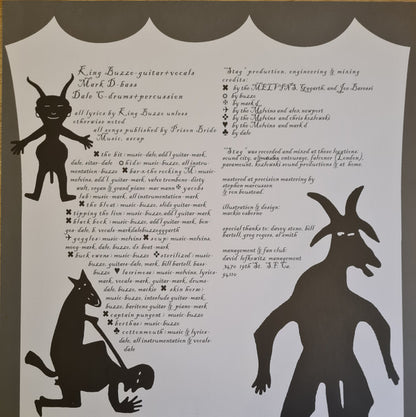 King Buzzo-guitar+vocals
Mark D-bass
Dale C-drums+percussion
all lyrics by King Buzzo unless
otherwise noted
all songs published by Prison Bride
Music, ascap
✖ the bit: music-dale, add'l guitar-mark,
dale, sitar-dale ○ hide: music-buzzo, all instru-
mentation-buzzo ✖ bar-x the rocking M: music-
melvins, add'l guitar-mark, valve trombone-dirty
walt, organ & grand piano-mac mann ✤ yacobs
lab: music-mark, all instrumentation-mark
✖ the bloat: music-buzzo, slide guitar-mark
✖ tipping the lion: music-buzzo, add'l guitar-mark
✖ black bock: music-buzzo, add'l guitar-mark, bon-
gos-dale, b. vocals-mark
✈ goggles: music-melvins ✖ soup: music-melvins,
moog-mark, dale, buzzo, de boat-mark
✖ buck owens: music-buzzo ❖ sterilized: music-
buzzo, guitars-dale, mark, bill bartell, bass-
buzzo ♥ laeriness: music-melvins, lyrics-
mark, vocals-mark, guitar-mark, drums-
dale, buzzo, mackie ✖ skin horse:
music-buzzo, interlude guitar-mark,
buzzo, baritone guitar & piano-mark
✖ captain pungent: music-buzzo
✖ berthas: music-buzzo
♣ cottonmouth: music & lyrics-
dale, all instrumentation & vocals-
dale
"Stag" production, engineering & mixing
credits:
✖ by the MELVINS, Gggarth, and Joe Barresi
○ by buzzo
✤ by mark d
✈ by the Melvins and alex newport
❖ by the Melvins and chris kozlowski
♥ by the Melvins and mark d
♣ by dale
"Stag" was recorded and mixed at these hygienic
sound city, a&m, entourage, falconer (London),
paramount, kozlowski sound productions & at home.
mastered at precision mastering by
stephen marcussen
& ron boustead.
illustration & design:
mackie osborne
special thanks to: davey stone, bill
bartell, greg rogers, al smith
management & fan club:
david lefkowitz management
3470 19th St. S.F. Ca.
94110